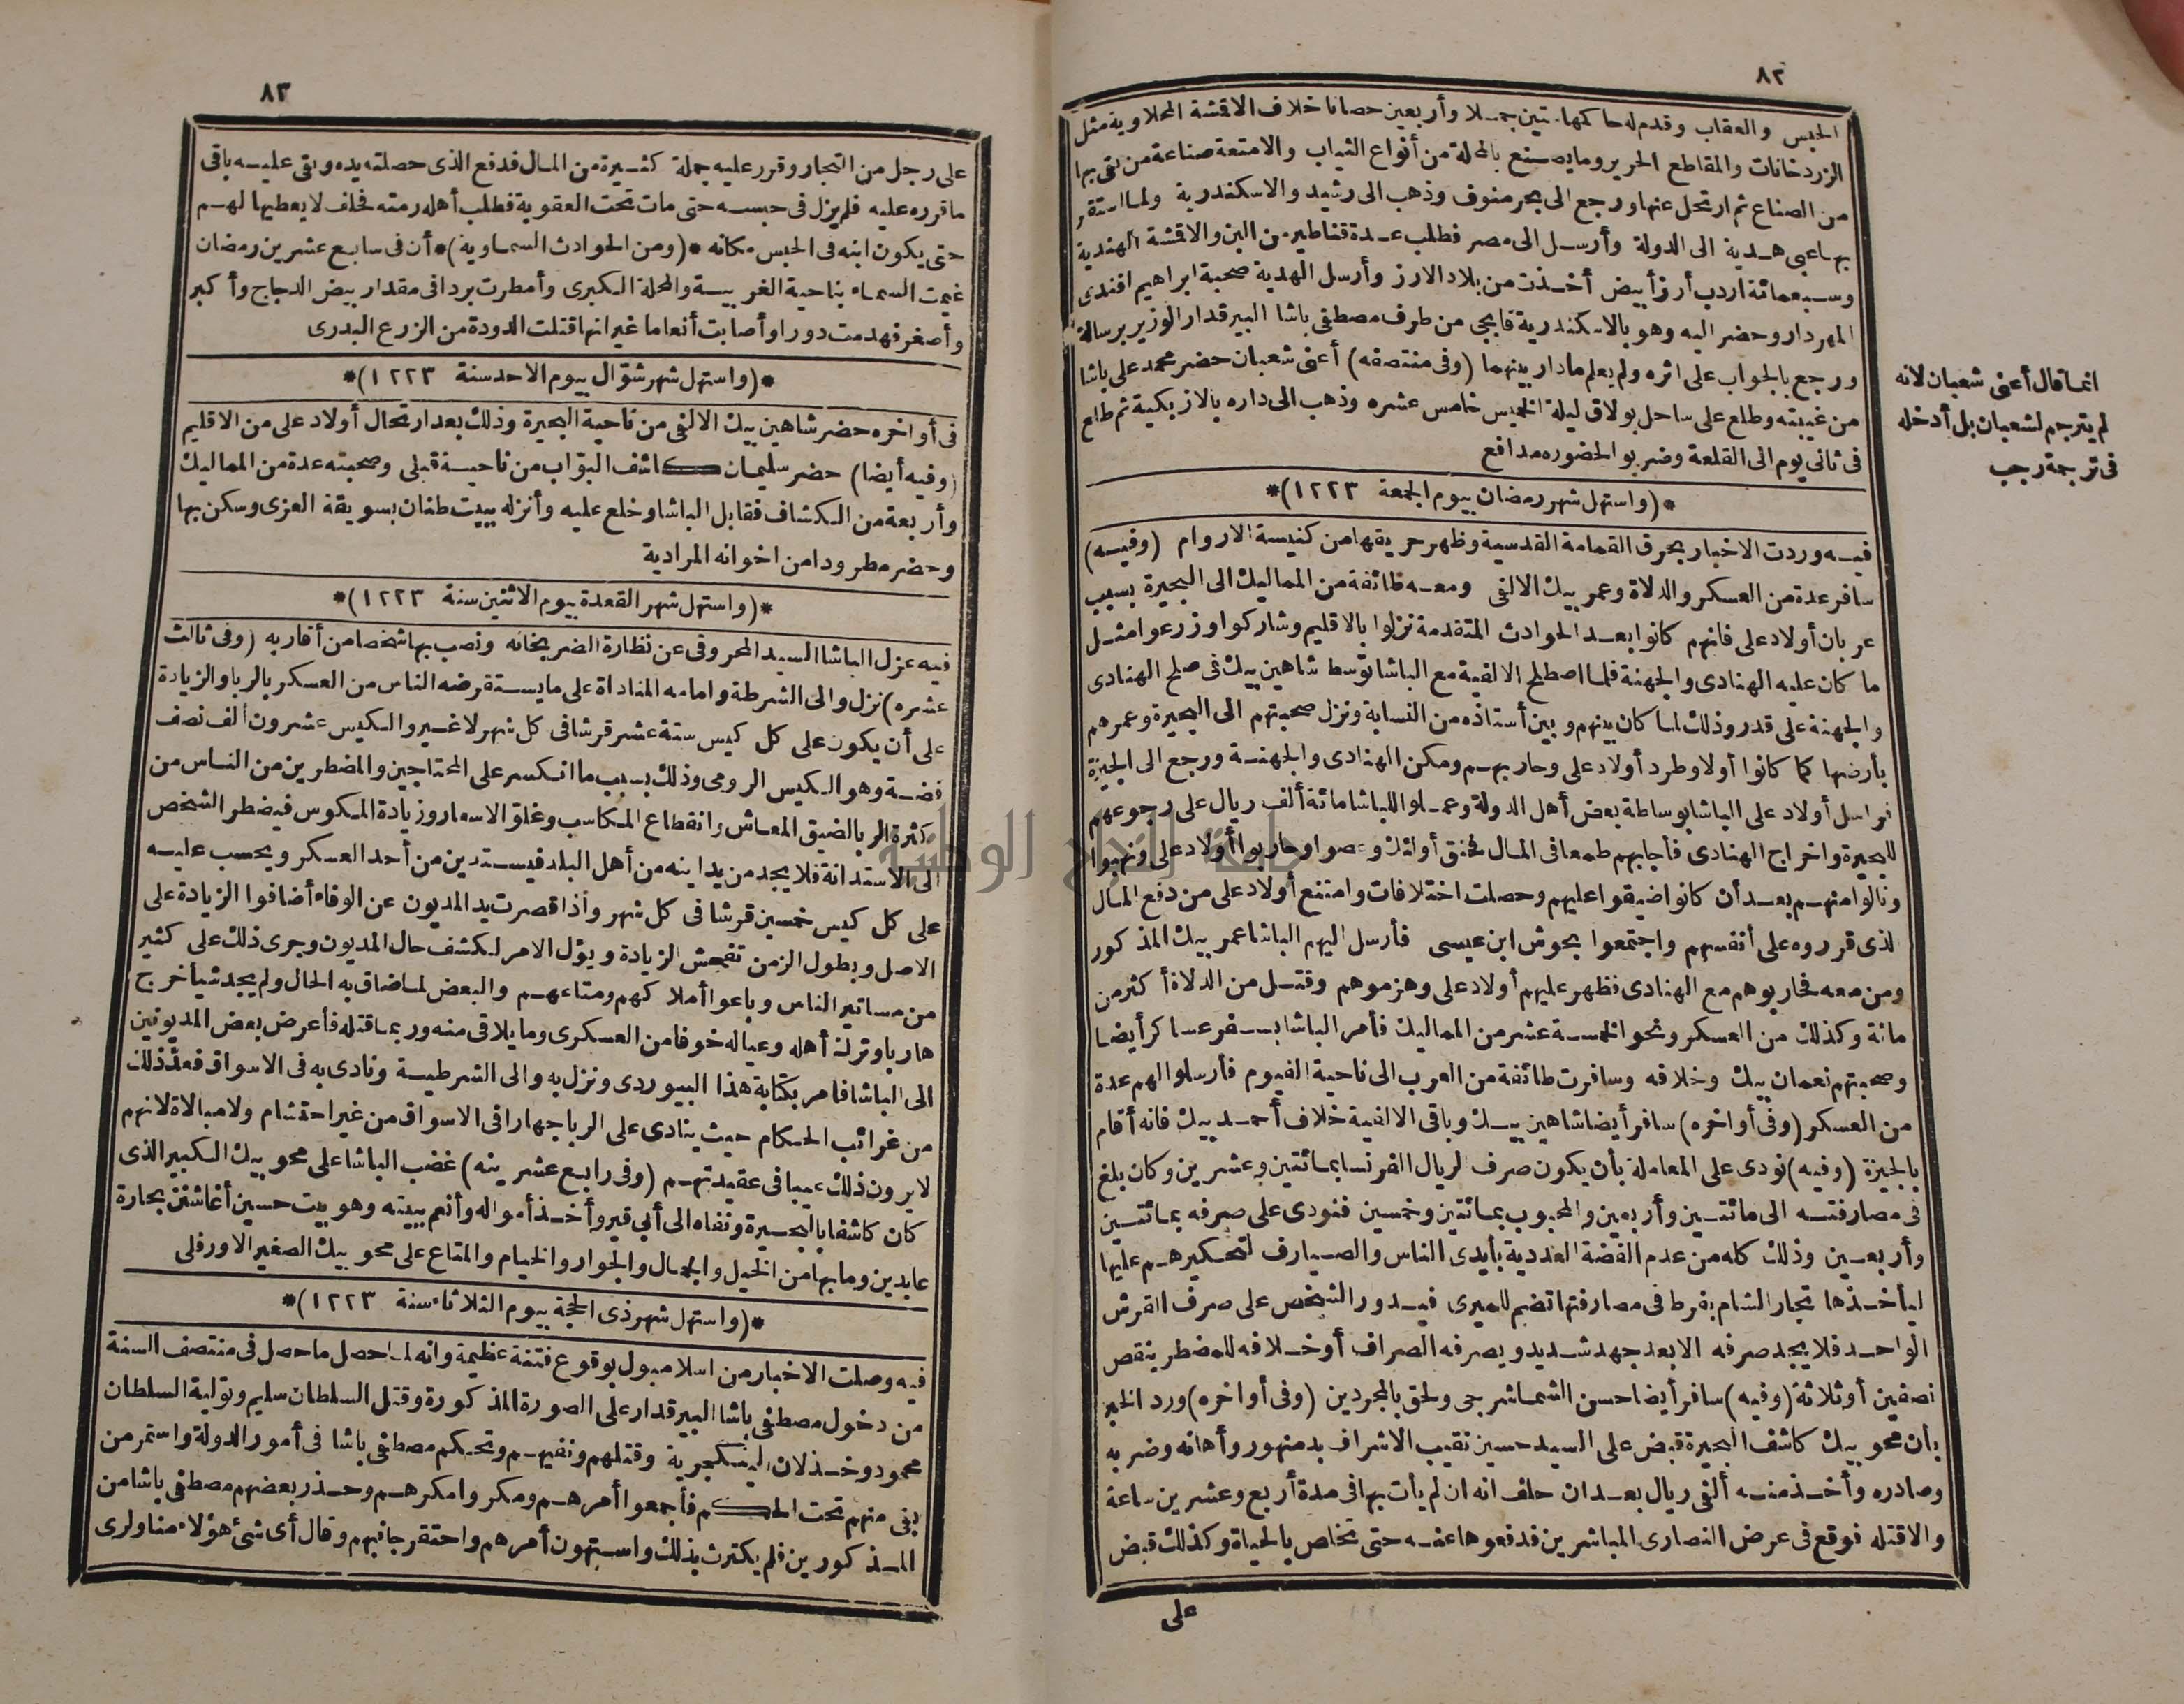 ٨٢
الحبس والعقاب وقدم له حاكمها ستين جملا وأربعين حصانا خلاف الاقمشة المحلاوية مثل
الزردخانات والمقاطع الحرير وما يصنع بالمحلة من أنواع الثياب والامتعة صناعة من بقى بها
من الصناع ثم ارتحل عنها ورجع الى بحر منوف وذهب الى رشيد والاسكندرية ولما استقر
بها عبى هدية الى الدولة وأرسل الى مصر فطلب عدة قناطير من البن والاقمشة الهندية
وسبعمائة اردب أرز أبيض أخذت من بلاد الارز وأرسل الهدية صحبة ابراهيم افندى
المهردار وحضر اليه وهو بالاسكندرية قابجى من طرف مصطفى باشا البيرقدار الوزير برسالة
ورجع بالجواب على اثره ولم يعلم مادار بينهما (وفى منتصفه) أعنى شعبان حضر محمد على باشا
من غيبته وطلع على ساحل بولاق ليلة الخميس خامس عشره وذهب الى داره بالازبكية ثم طلع
فى ثانى يوم الى القلعة وضربوا لحضوره مدافع
انما قال أعنى شعبان لانه
لم يترجم لشعبان بل أدخله
فى ترجمة رجب
*(واستهل شهر رمضان بيوم الجمعة ١٢٢٣)*
فيه وردت الاخبار بحرق القمامة القدسية وظهر حريقها من كنيسة الاروام (وفيه)
سافر عدة من العسكر والدلاة وعمر بيك الالفى ومعه طائفة من المماليك الى البحيرة بسبب
عربان أولاد على فانهم كانوا بعد الحوادث المتقدمة نزلوا بالاقليم وشاركوا وزرعوا مثل
ما كان عليه الهنادى والجهنة فلما اصطلح الالفية مع الباشا توسط شاهين بيك فى صلح الهنادى
والجهنة على قدر وذلك لما كان بينهم وبين أستاذه من النسابة ونزل صحبتهم الى البحيرة وعمرهم
بأرضها كما كانوا أولا وطرد أولاد على وحاربهم ومكن الهنادى والجهنة ورجع الى الجيزة
فراسل أولاد على الباشا بوساطة بعض أهل الدولة وعملوا للباشا مائة ألف ريال على رجوعهم
للبحيرة واخراج الهنادى فأجابهم طمعا فى المال فحنق أولئك وعصوا وحاربوا أولاد على ونهبوا
ونالوا منهم بعد أن كانوا ضيقوا عليهم وحصلت اختلافات وامتنع أولاد على من دفع المال
لذى قرروه على أنفسهم واجتمعوا بحوش ابن عيسى فأرسل اليهم الباشا عمر بيك المذكور
ومن معه فحاربوهم مع الهنادى فظهر عليهم أولاد على وهزموهم وقتل من الدلاة أكثر من
مائة وكذلك من العسكر ونحو الخمسة عشر من المماليك فأمر الباشا بسفر عساكر أيضا
وصحبتهم نعمان بيك وخلافه وسافرت طائفة من العرب الى ناحية الفيوم فأرسلوا لهم عدة
من العسكر (وفى أواخره) سافر أيضا شاهين بيك وباقى الالفية خلاف أحمد بيك فانه أقام
بالجيزة (وفيه) نودى على المعاملة بأن يكون صرف الريال الفرنسا بمائتين وعشرين وكان بلغ
فى مصارفته الى مائتين وأربعين والمحبوب بمائتين وخمسين فنودى على صرفه بمائتين
وأربعين وذلك كله من عدم الفضة العددية بأيدى الناس والصيارف لتحكيرهم عليها
ليأخذها تجار الشام بفرط فى مصارفتها تضم للميرى فيدور الشخص على صرف القرش
الواحد فلا يجد صرفه الا بعد جهد شديد ويصرفه الصراف أو خلافه للمضطر بنقص
نصفين أو ثلاثة (وفيه) سافر أيضا حسن الشماشرجى ولحق بالمجردين (وفى أواخره) ورد الخبر
بأن محو بيك كاشف البحيرة قبض على السيد حسين نقيب الاشراف بدمنهور وأهانه وضربه
وصادره وأخذ منه ألفى ريال بعد ان حلف انه ان لم يأت بها فى مدة أربع وعشرين ساعة
والا قتله فوقع فى عرض النصارى المباشرين فدفعوها عنه حتى تخلص بالحياة وكذلك قبض
على
٨٣
على رجل من التجار وقرر عليه جملة كثيرة من المال فدفع الذى حصلته يده وبقى عليه باقى
ما قرره عليه فلم يزل فى حبسه حتى مات تحت العقوبة فطلب أهله رمته فحلف لا يعطيها لهم
حتى يكون ابنه فى الحبس مكانه *(ومن الحوادث السماوية)* أن فى سابع عشرين رمضان
غيمت السماء بناحية الغربية والمحلة الكبرى وأمطرت بردا فى مقدار بيض الدجاج وأكبر
وأصغر فهدمت دورا وأصابت أنعاما غير انها قتلت الدودة من الزرع البدرى
*(واستهل شهر شوّال بيوم الاحد سنة ١٢٢٣)*
فى أواخره حضر شاهين بيك الالفى من ناحية البحيرة وذلك بعد ارتحال أولاد على من الاقليم
(وفيه أيضا) حضر سليمان كاشف البوّاب من ناحية قبلى وصحبته عدة من المماليك
وأربعة من الكشاف فقابل الباشا وخلع عليه وأنزله ببيت طنان بسويقة العزى وسكن بها
وحضر مطرودا من اخوانه المرادية
*(واستهل شهر القعدة بيوم الاثنين سنة ١٢٢٣)*
فيه عزل الباشا السيد المحروقى عن نظارة الضربخانه ونصب بها شخصا من أقاربه (وفى ثالث
عشره) نزل والى الشرطة وامامه المناداة على ما يستقرضه الناس من العسكر بالربا والزيادة
على أن يكون على كل كيس ستة عشر قرشا فى كل شهر لا غير والكيس عشرون ألف نصف
فضة وهو الكيس الرومى وذلك بسبب ما انكسر على المحتاجين والمضطرين من الناس من
كثرة الربا لضيق المعاش وانقطاع المكاسب وغلوّ الاسعار وزيادة المكوس فيضطر الشخص
الى الاستدانة فلا يجد من يداينه من أهل البلد فيستدين من أحد العسكر ويحسب عليه
على كل كيس خمسين قرشا فى كل شهر واذا قصرت يد المديون عن الوفاء أضافوا الزيادة على
الاصل وبطول الزمن تفحش الزيادة ويؤل الامر لكشف حال المديون وجرى ذلك على كثير
من مساتير الناس وباعوا أملاكهم ومتاعهم والبعض لما ضاق به الحال ولم يجد شيأ خرج
هاربا وترك أهله وعياله خوفا من العسكرى وما يلاقى منه وربما قتله فأعرض بعض المديونين
الى الباشا فامر بكتابة هذا البيوردى ونزل به والى الشرطية ونادى به فى الاسواق فعدّ ذلك
من غرائب الحكام حيث ينادى على الربا جهارا فى الاسواق من غير احتشام ولا مبالاة لانهم
لا يرون ذلك عيبا فى عقيدتهم (وفى رابع عشرينه) غضب الباشا على محو بيك الكبير الذى
كان كاشفا بالبحيرة ونفاه الى أبى قير وأخذ أمواله وأنعم ببيته وهو بيت حسين أغا شنن بحارة
عابدين وما بها من الخيل والجمال والجوار والخيام والمتاع على محو بيك الصغير الاورفلى
*(واستهل شهر ذى الحجة بيوم الثلاثاء سنة ١٢٢٣)*
فيه وصلت الاخبار من اسلامبول بوقوع فتنة عظيمة وانه لما حصل ما حصل فى منتصف السنة
من دخول مصطفى باشا البيرقدار على الصورة المذكورة وقتل السلطان سليم وتولية السلطان
محمود وخذلان الينكجرية وقتلهم ونفيهم وتحكم مصطفى باشا فى أمور الدولة واستمر من
بقى منهم تحت الحكم فأجمعوا أمرهم ومكروا مكرهم وحذر بعضهم مصطفى باشا من
المذكورين فلم يكترث بذلك واستهون أمرهم واحتقر جانبهم وقال أى شئ هؤلاء مناولرى
جامعة النجاح الوطنية